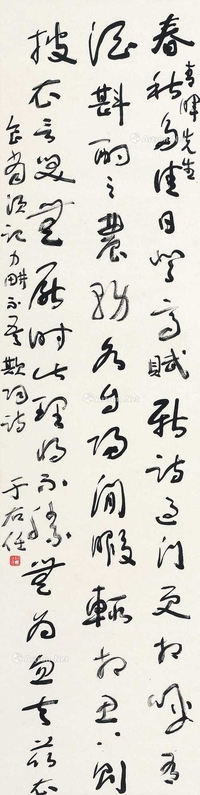 暉先生
春秋多佳日登高賦新詩過門更相呼有
酒斟酌之農務各自歸閒暇輒相思〻則
披衣言笑無厭時此理將不勝無為忽去茲衣
食當須記力畊不吾欺陶詩
于右任